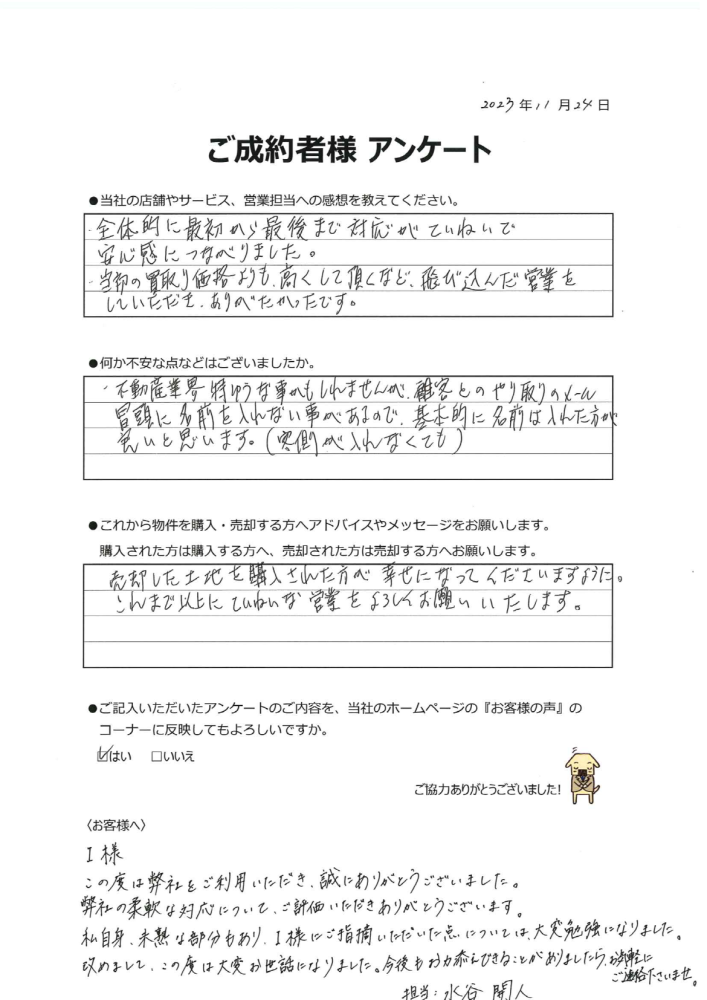 2023年11月24日
ご成約者様 アンケート
●当社の店舗やサービス、営業担当への感想を教えてください。
・全体的に最初から最後まで対応がていねいで
安心感につながりました。
・当初の買取り価格よりも、高くして頂くなど、飛び込んだ営業を
していただき、ありがたかったです。
●何か不安な点などはございましたか。
・不動産業界特ゆうな事かもしれませんが、顧客とのやり取りのメール
冒頭に名前を入れない事があるので、基本的に名前は入れた方が
良いと思います。(客側が入れなくても)
●これから物件を購入・売却する方へアドバイスやメッセージをお願いします。
購入された方は購入する方へ、売却された方は売却する方へお願いします。
売却した土地を購入された方が幸せになってくださいますように。
これまで以上にていねいな営業をよろしくお願いいたします。
●ご記入いただいたアンケートのご内容を、当社のホームページの『お客様の声』の
コーナーに反映してもよろしいですか。
☑はい □いいえ
ご協力ありがとうございました!
〈お客様へ〉
I様
この度は弊社をご利用いただき、誠にありがとうございました。
弊社の柔軟な対応について、ご評価いただきありがとうございます。
私自身、未熟な部分もあり、I様にご指摘いただいた点については、大変勉強になりました。
改めまして、この度は大変お世話になりました。今後もお力添えできることがありましたら、お気軽に
ご連絡下さいませ。
担当:水谷 開人